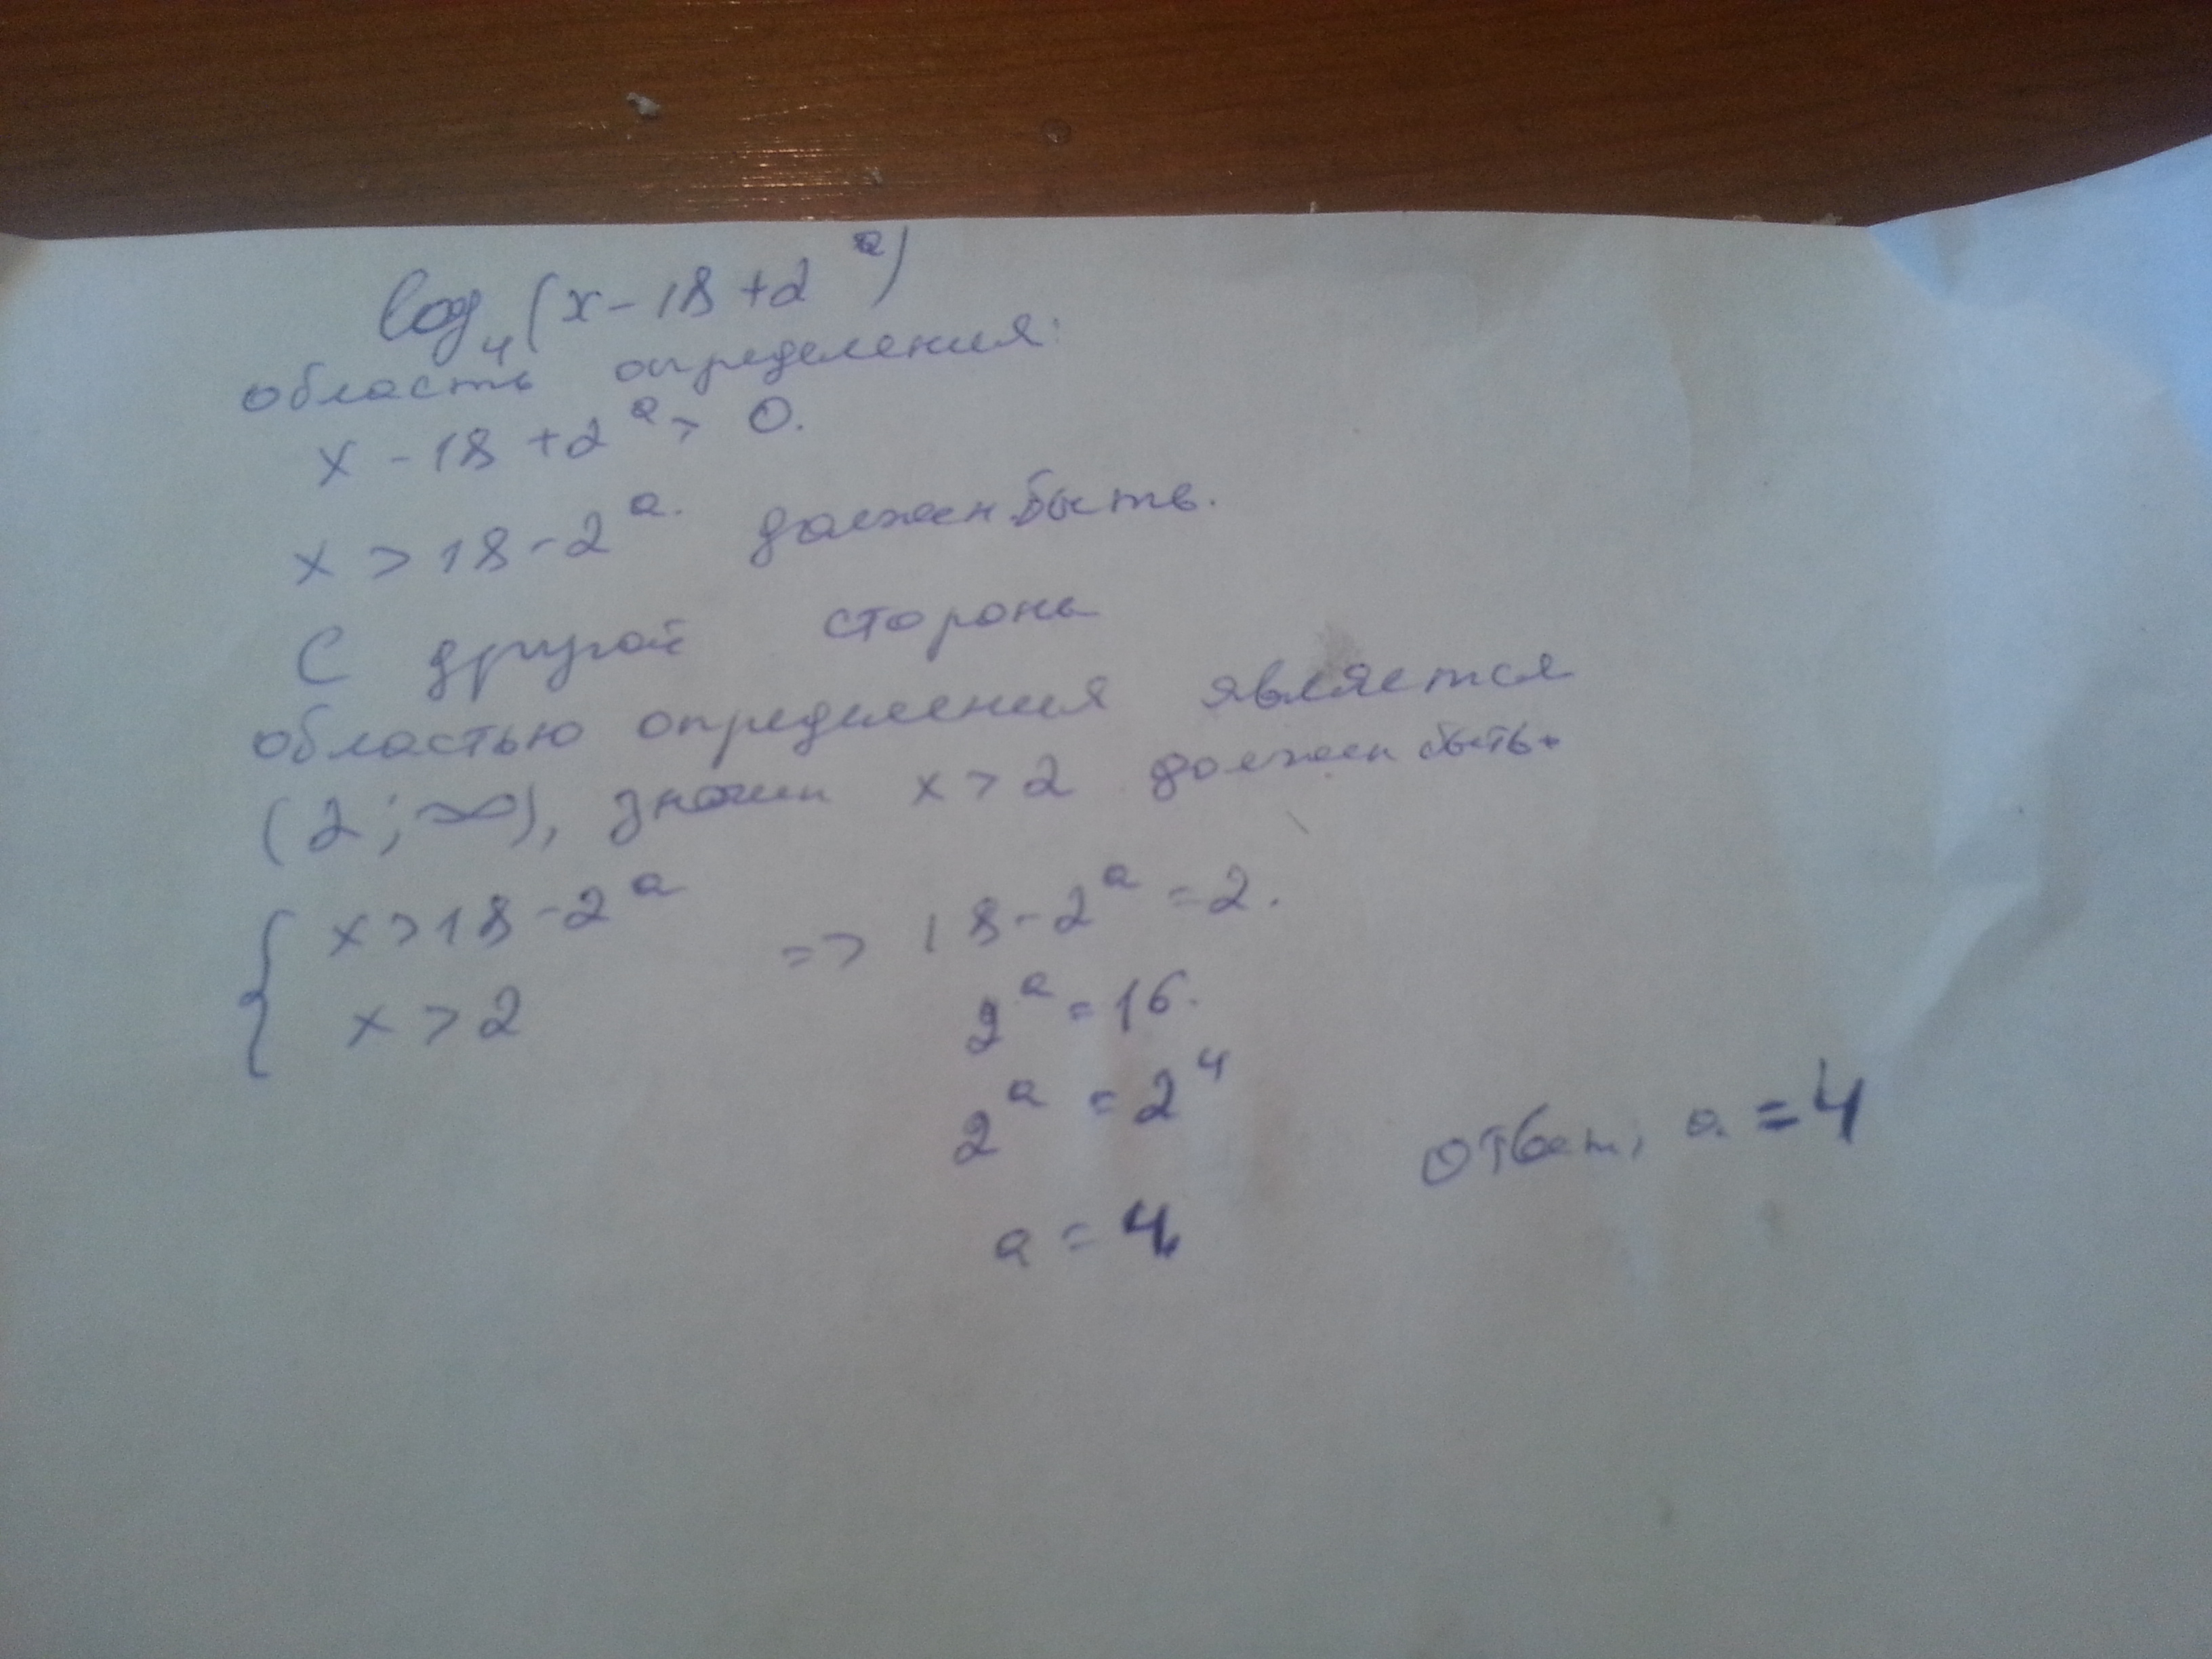 log₄(x-18+2ᵃ)
область определения:
x-18+2ᵃ > 0.
x > 18-2ᵃ. должен быть.
С другой стороны
областью определения является
(2; ∞), значит x > 2 должен быть.
{ x > 18-2ᵃ => 18-2ᵃ = 2.
x > 2 2ᵃ = 16.
2ᵃ = 2⁴
Ответ: a = 4
a = 4